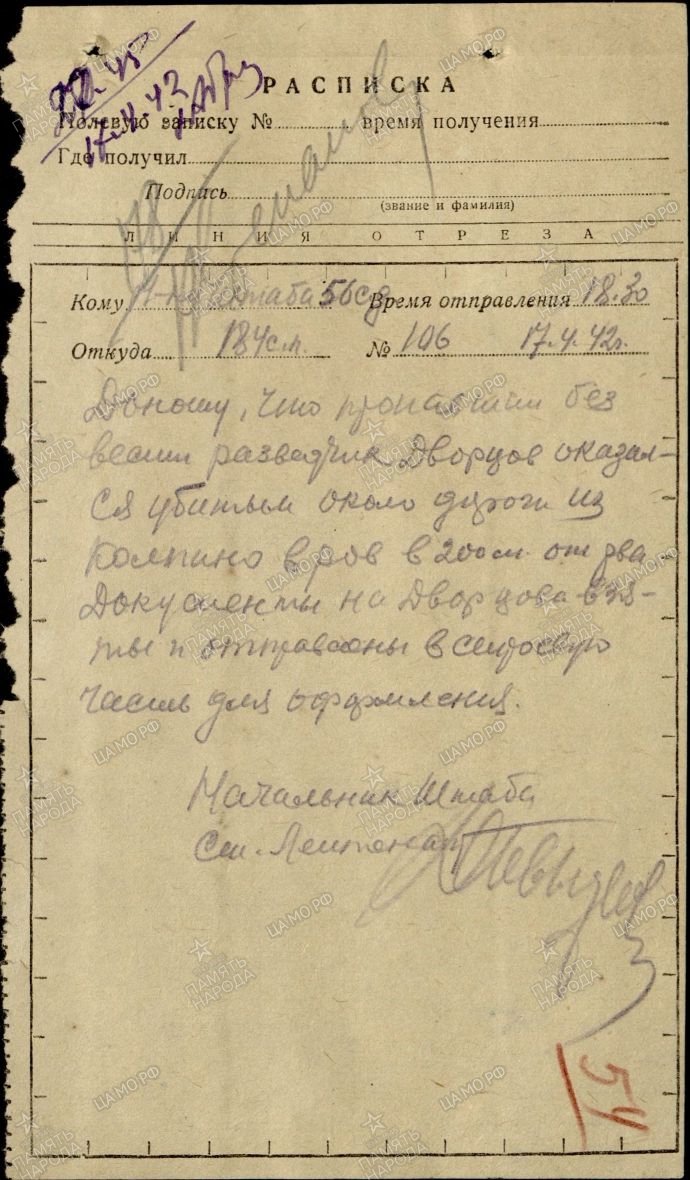 РАСПИСКА
Полевую записку № время получения
17.4.42
Где получил
Подпись
(звание и фамилия)
ЛИНИЯ ОТРЕЗА
Кому штаба 56 сд Время отправления 18.30
Откуда 184 с.п. № 106 17.4.42г.
Доношу, что пропавший без
вести разведчик Дворцов оказал-
ся убитым около дороги из
Колпино в ров в 200 м. от рва
Документы на Дворцова взя-
ты и отправлены в
часть для оформления.
Начальник Штаба
Ст. Лейтенант
54